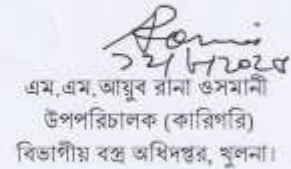 ১২/৮/২০২৫
এম.এম.আয়ুব রানা ওসমানী
উপপরিচালক (কারিগরি)
বিভাগীয় বস্ত্র অধিদপ্তর, খুলনা।